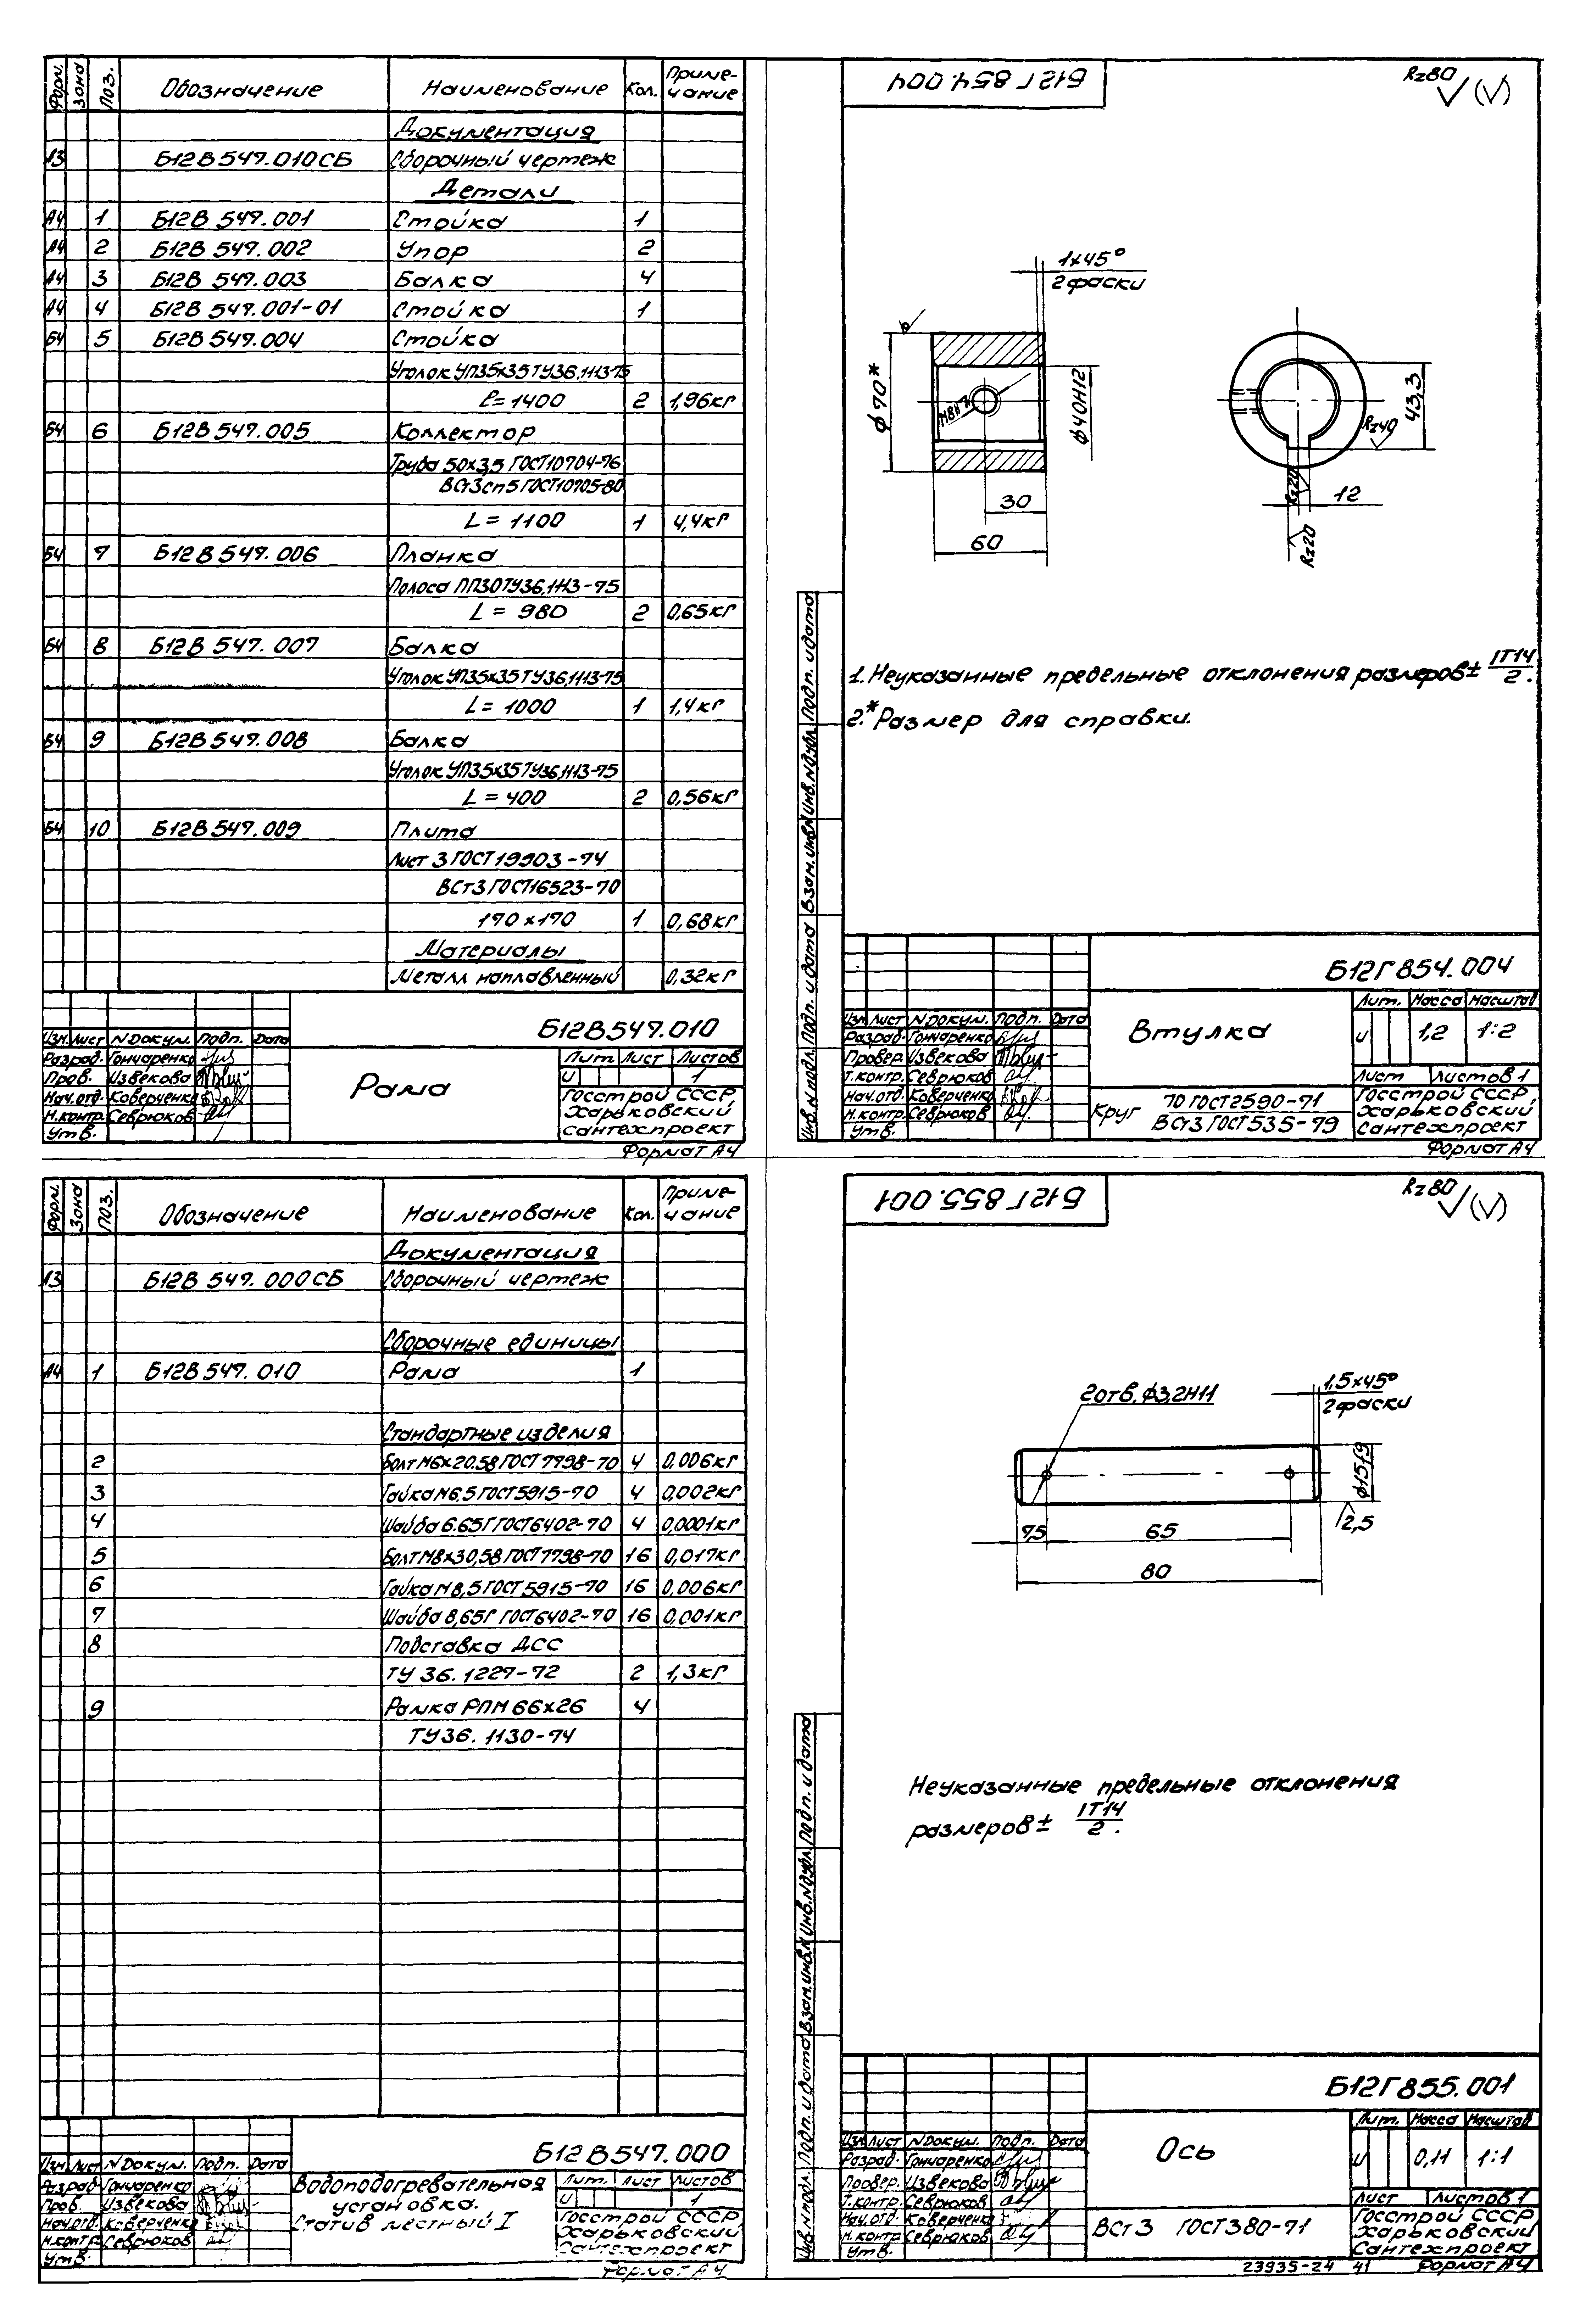 Форм. Зона Поз. Обозначение Наименование Кол. Приме-
чание
Документация
А3 Б12В 547.010СБ Сборочный чертеж
Детали
А4 1 Б12В 547.001 Стойка 1
А4 2 Б12В 547.002 Упор 2
А4 3 Б12В 547.003 Балка 4
А4 4 Б12В 547.001-01 Стойка 1
Б4 5 Б12В 547.004 Стойка
Уголок УП35х35 ТУ36.1113-75
ℓ=1400 2 1,96кг
Б4 6 Б12В 547.005 Коллектор
Труба 50х3,5 ГОСТ10704-76
ВСт3сп5 ГОСТ10705-80
L=1100 1 4,4кг
Б4 7 Б12В 547.006 Планка
Полоса ПП30ТУ36.1113-75
L=980 2 0,65кг
Б4 8 Б12В 547.007 Балка
Уголок УП35х35ТУ36.1113-75
L=1000 1 1,4кг
Б4 9 Б12В 547.008 Балка
Уголок УП35х35ТУ36.1113-75
L=400 2 0,56кг
Б4 10 Б12В 547.009 Плита
Лист 3 ГОСТ19903-74
ВСт3 ГОСТ16523-70
170х170 1 0,68кг
Материалы
Металл наплавленный 0,32кг
Б12В547.010
Изм. Лист N Докум. Подп. Дата
Разраб. Гончаренко
Пров. Извекова
Нач.отд. Коверченко
Н.контр. Севрюков
Утв.
Рама
Лит. Лист Листов
И 1
Госстрой СССР
Харьковский
сантехпроект
Формат А4
Б12Г 854.004
Rz80 (√)
1х45°
2 фаски
ф70*
М8Н7
ф40Н12
30
60
43,3
Rz40
Rz20
12
Rz20
1. Неуказанные предельные отклонения размеров ± IT14/2.
2.* Размер для справки.
Инв.N подл. Подп. и дата Взам.инв.N Инв.N дубл. Подп. и дата
Б12Г854.004
Изм. Лист N Докум. Подп. Дата
Разраб. Гончаренко
Провер. Извекова
Т.контр. Севрюков
Нач.отд. Коверченко
Н.контр. Севрюков
Утв.
Втулка
Лит. Масса Масштаб
И 1,2 1:2
Лист Листов 1
Круг 70 ГОСТ2590-71
ВСт3 ГОСТ535-79
Госстрой СССР
Харьковский
Сантехпроект
Формат А4
Форм. Зона Поз. Обозначение Наименование Кол. Приме-
чание
Документация
А3 Б12В 547.000СБ Сборочный чертеж
Сборочные единицы
А4 1 Б12В547.010 Рама 1
Стандартные изделия
2 Болт М6х20.58 ГОСТ 7798-70 4 0,006кг
3 Гайка М6.5 ГОСТ5915-70 4 0,002кг
4 Шайба 6.65Г ГОСТ6402-70 4 0,0001кг
5 Болт М8х30,58 ГОСТ 7798-70 16 0,017кг
6 Гайка М8,5 ГОСТ5915-70 16 0,006кг
7 Шайба 8,65Г ГОСТ6402-70 16 0,001кг
8 Подставка ДСС
ТУ 36.1227-72 2 1,3кг
9 Рамка РПМ 66х26 4
ТУ36.1130-74
Б12В547.000
Изм. Лист N Докум. Подп. Дата
Разраб. Гончаренко
Пров. Извекова
Нач.отд. Коверченко
Н.контр. Севрюков
Утв.
Водоподогревательная
установка.
Статив местный I
Лит. Лист Листов
И 1
Госстрой СССР
Харьковский
Сантехпроект
Формат А4
Б12Г 855.001
Rz80 (√)
2отв. ф3,2Н11
1,5х45°
2 фаски
ф15f9
2,5
7,5
65
80
Неуказанные предельные отклонения
размеров ± IT14/2.
Инв.N подл. Подп. и дата Взам.инв.N Инв.N дубл. Подп. и дата
Б12Г855.001
Изм. Лист N Докум. Подп. Дата
Разраб. Гончаренко
Провер. Извекова
Т.контр. Севрюков
Нач.отд. Коверченко
Н.контр. Севрюков
Утв.
Ось
Лит. Масса Масштаб
И 0,11 1:1
Лист Листов 1
ВСт3 ГОСТ380-71
Госстрой СССР
Харьковский
Сантехпроект
23935-24 41 Формат А4